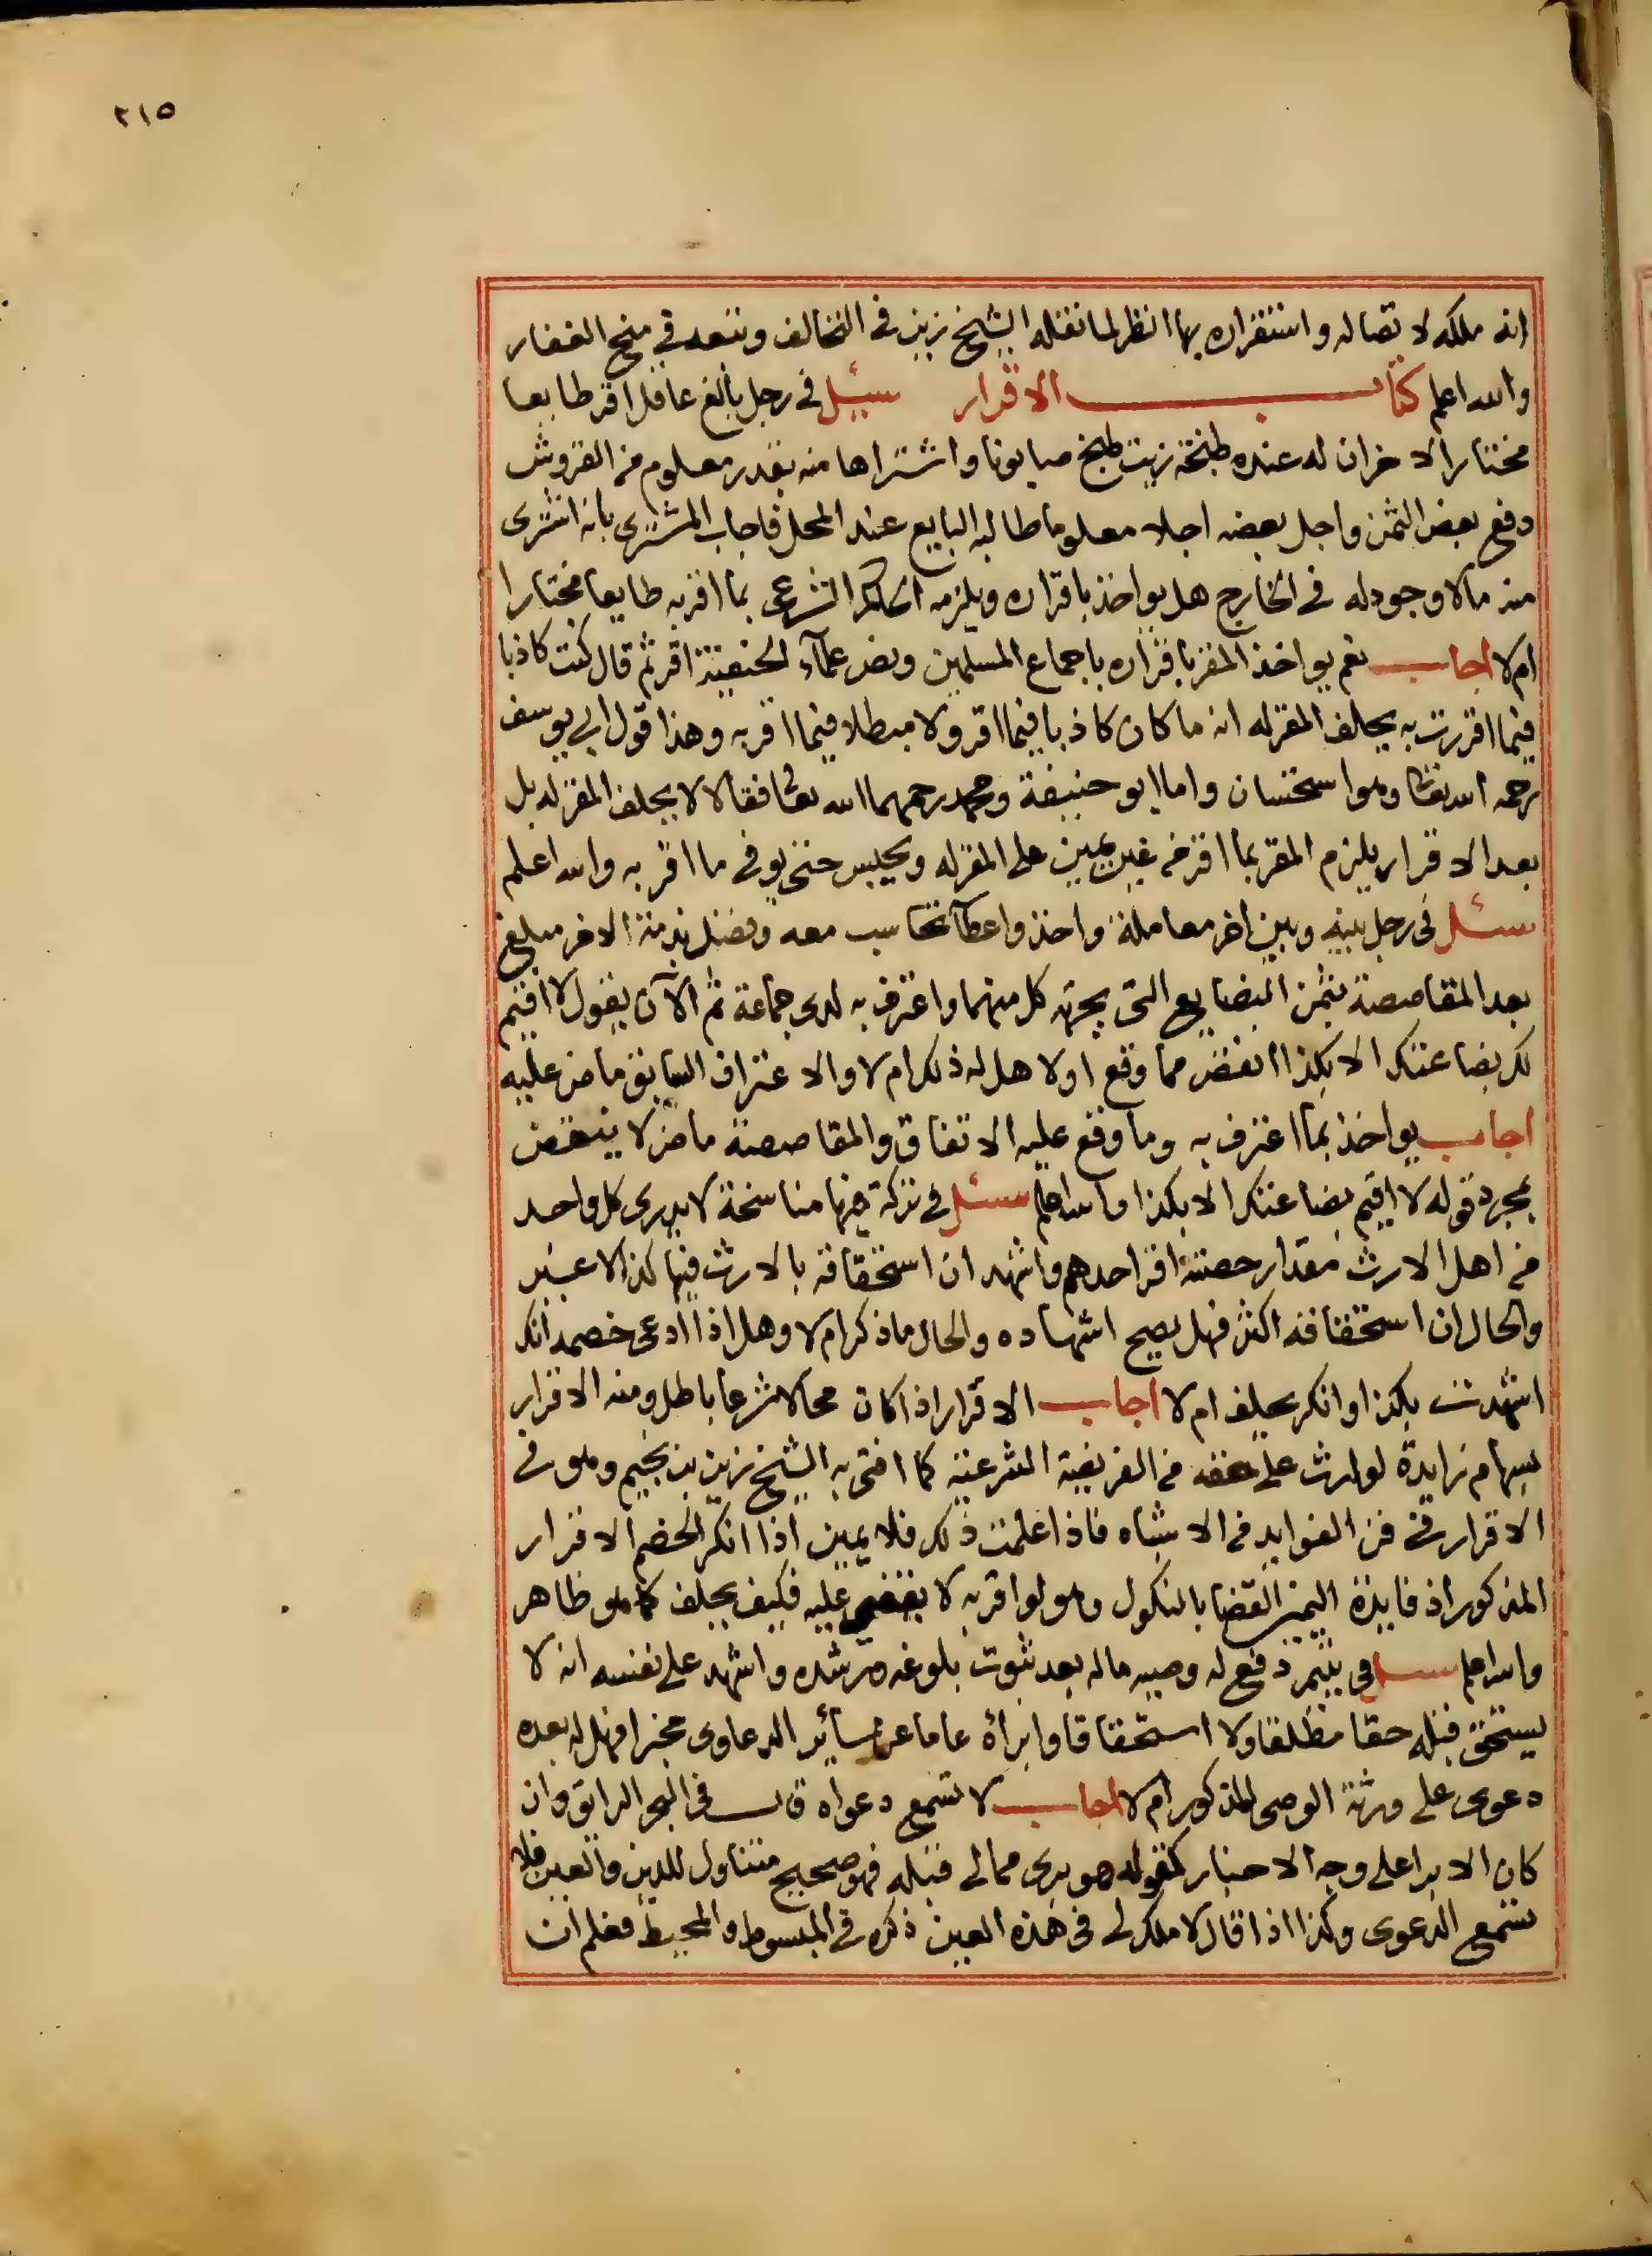 ٢١٥
انه ملكه لا تصاله واستقراره بها انظر لما نقله الشيخ زين في التخالف وتبعه في منح الغفار
والله اعلم كتاب الاقرار سئل في رجل بالغ عاقل اقر طايعا
مختارا لاخر ان له عنده طبخة زيت طبخ صابونا واشتراها منه بقدر معلوم من القروش
دفع بعض الثمن واجل بعضه اجلا معلوما طالبه البايع عند المحل فاجاب المشتري بانه اشترى
منه مالا وجود له في الخارج هل يواخذ باقراره ويلزمه الحكم الشرعي بما اقر به طايعا مختارا
ام لا اجاب نعم يواخذ المقر باقراره باجماع المسلمين ونص علماء الحنفية اقر ثم قال كنت كاذبا
فيما اقررت به يحلف المقر له انه ما كان كاذبا فيما اقر ولا مبطلا فيما اقر به وهذا قول ابي يوسف
رحمه الله تعالى وهو استحسان واما ابو حنيفة ومحمد رحمهما الله تعالى فقالا لا يحلف المقر له بل
بعد الاقرار يلزم المقر بما اقر من غير يمين على المقر له ويحبس حتى يوفي ما اقر به والله اعلم
سئل في رجل بينه وبين اخر معاملة واخذ واعطا تحاسب معه وفضل بذمة الاخر مبلغ
بعد المقاصصة بثمن البضايع التي بجهة كل منهما واعترف به لدى جماعة ثم الآن يقول لا اقيم
لك بضاعتك الا بكذا انقص مما وقع اولا هل له ذلك ام لا والاعتراف السابق ماض عليه
اجاب يواخذ بما اعترف به وما وقع عليه الاتفاق والمقاصصة ماض لا ينتقض
بمجرد قوله لا اقيم بضاعتك الا بكذا والله اعلم سئل في تركة فيها مناسخة لا يدري كل واحد
من اهل الارث مقدار حصته اقر احدهم واشهد ان استحقاقه بالارث فيها كذا لا غير
والحال ان استحقاقه اكثر فهل يصح اشهاده والحال ماذكر ام لا وهل اذا ادعى خصمه انك
اشهدت بكذا وانكر يحلف ام لا اجاب الاقرار اذا كان محالا شرعا باطل ومنه الاقرار
بسهام زايدة لوارث على حقه من الفريضة الشرعية كما افتى به الشيخ زين بن نجيم وهو في
الاقرار في فن الفوايد من الاشباه فاذا علمت ذلك فلا يمين اذا انكر الخصم الاقرار
المذكور اذ فايدة اليمين القضا بالنكول وهو لو اقر به لا يقضى عليه فكيف يحلف كما هو ظاهر
والله اعلم سئل في يتيم دفع له وصيه ماله بعد ثبوت بلوغه ورشده واشهد على نفسه انه لا
يستحق قبله حقا مطلقا ولا استحقاقا وابرأه عاما عن ساير الدعاوى مخبرا فهل له بعده
دعوى على ورثة الوصي المذكور ام لا اجاب لا تسمع دعواه قال في البحر الرائق وان
كان الابرا على وجه الاخبار كقوله هو برى مما لي قبله فهو صحيح متناول للدين والعين فلا
تسمع الدعوى وكذا اذا قال لا ملك لي في هذه العين ذكره في المبسوط والمحيط فعلم ان